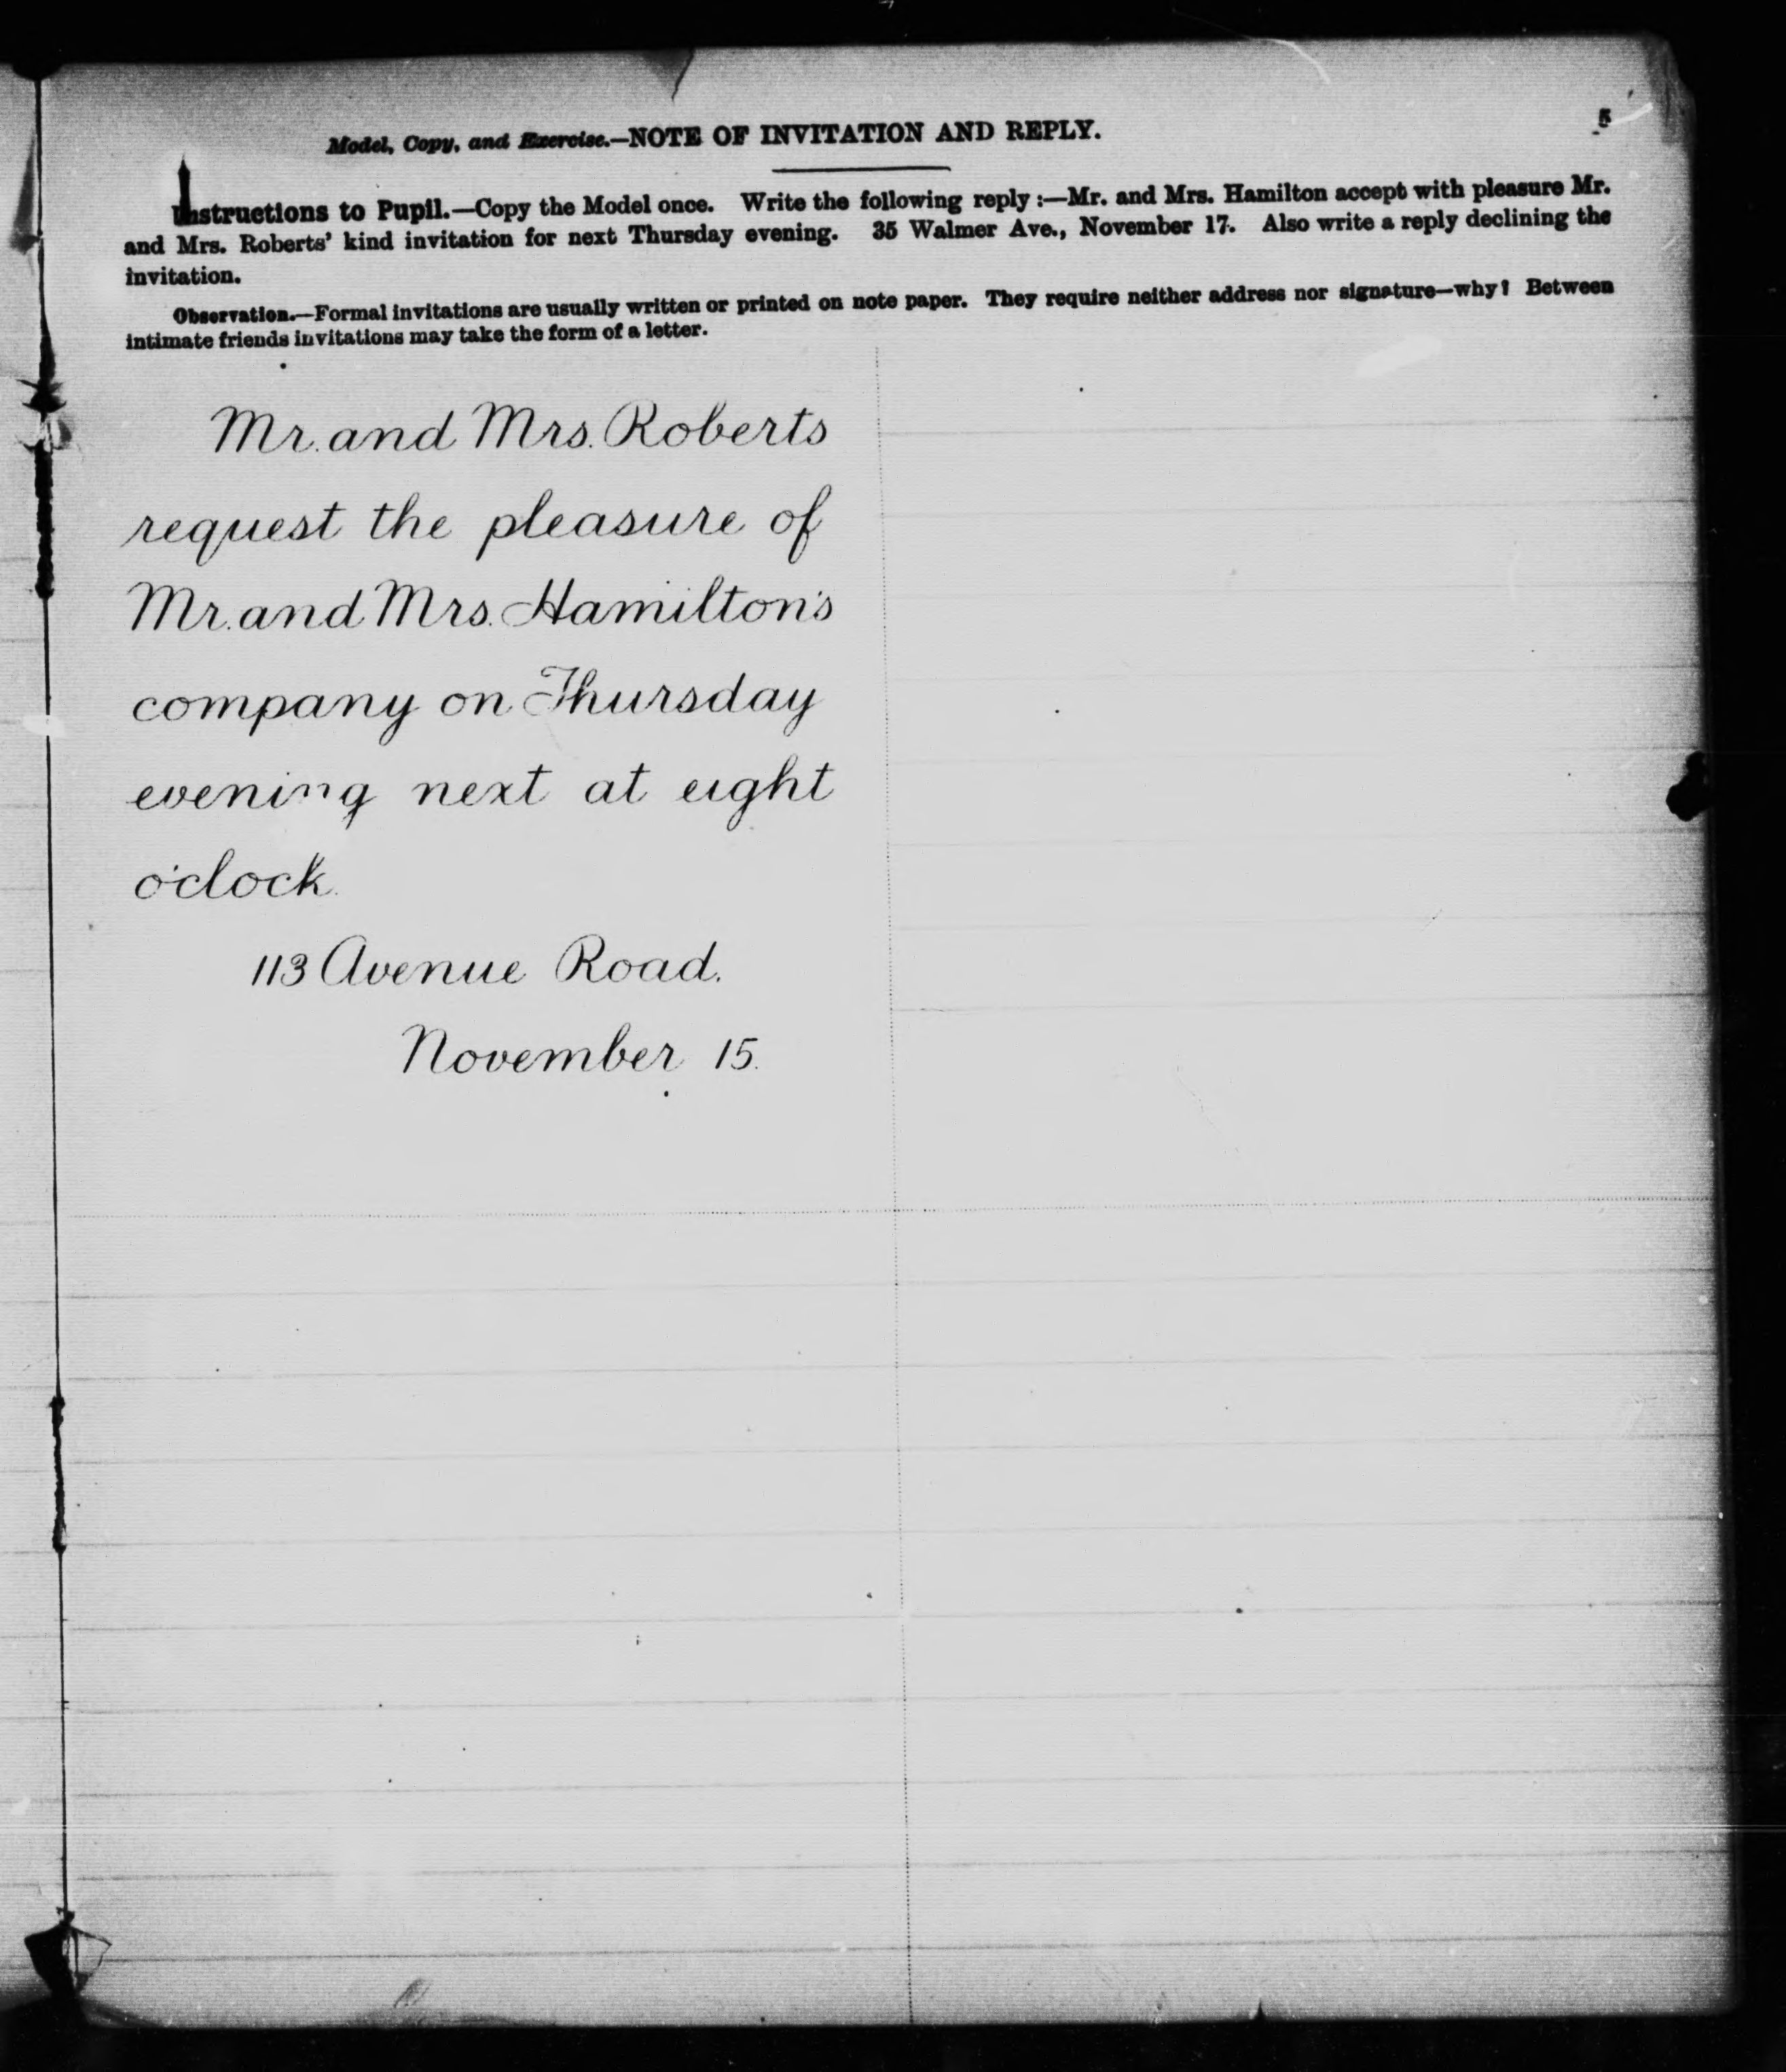 5
Model, Copy, and Exercise.—NOTE OF INVITATION AND REPLY.
Instructions to Pupil.—Copy the Model once. Write the following reply:—Mr. and Mrs. Hamilton accept with pleasure Mr.
and Mrs. Roberts' kind invitation for next Thursday evening. 35 Walmer Ave., November 17. Also write a reply declining the
invitation.
Observation.—Formal invitations are usually written or printed on note paper. They require neither address nor signature—why? Between
intimate friends invitations may take the form of a letter.
Mr. and Mrs. Roberts
request the pleasure of
Mr. and Mrs. Hamilton's
company on Thursday
evening next at eight
o'clock.
113 Avenue Road.
November 15.